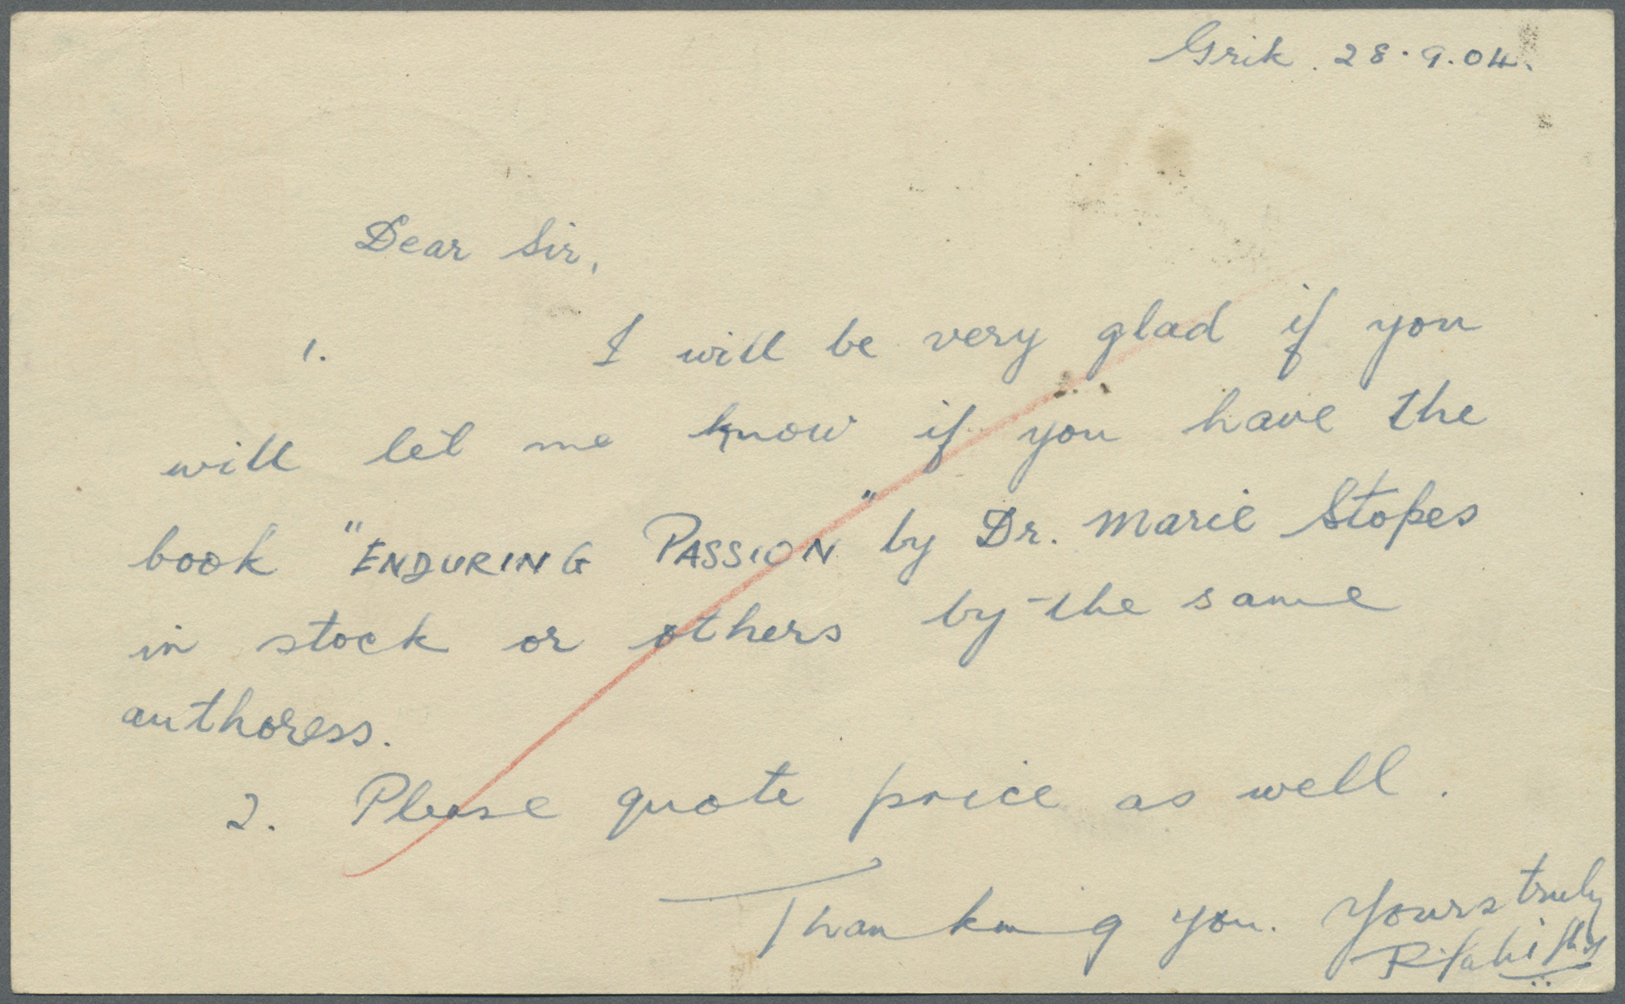 Grik. 28.9.04.
Dear Sir,
1. I will be very glad if you
will let me know if you have the
book "ENDURING PASSION" by Dr. Marie Stopes
in stock or others by the same
authoress.
2. Please quote price as well.
Thanking you. Yours truly